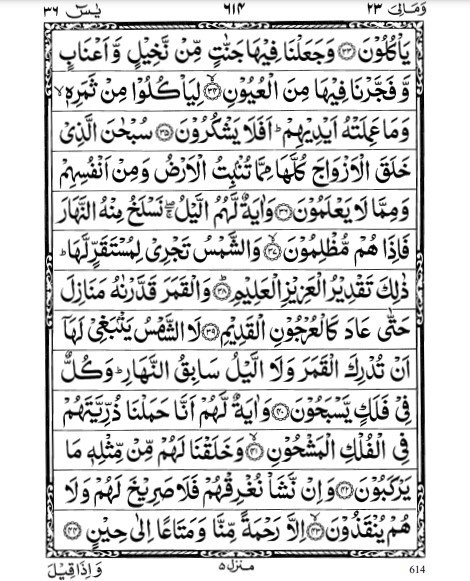 وَمَالِىَ ٢٣ ٦١٤ يٰسٓ ٣٦
يَاْكُلُوْنَ ﴿٣٣﴾ وَجَعَلْنَا فِيْهَا جَنّٰتٍ مِّنْ نَّخِيْلٍ وَّاَعْنَابٍ
وَّفَجَّرْنَا فِيْهَا مِنَ الْعُيُوْنِ ﴿٣٤﴾ لِيَاْكُلُوْا مِنْ ثَمَرِهٖ ۙ
وَمَا عَمِلَتْهُ اَيْدِيْهِمْ ؕ اَفَلَا يَشْكُرُوْنَ ﴿٣٥﴾ سُبْحٰنَ الَّذِىْ
خَلَقَ الْاَزْوَاجَ كُلَّهَا مِمَّا تُنْۢبِتُ الْاَرْضُ وَمِنْ اَنْفُسِهِمْ
وَمِمَّا لَا يَعْلَمُوْنَ ﴿٣٦﴾ وَاٰيَةٌ لَّهُمُ الَّيْلُ ۖۚ نَسْلَخُ مِنْهُ النَّهَارَ
فَاِذَا هُمْ مُّظْلِمُوْنَ ۙ﴿٣٧﴾ وَالشَّمْسُ تَجْرِىْ لِمُسْتَقَرٍّ لَّهَا ؕ
ذٰلِكَ تَقْدِيْرُ الْعَزِيْزِ الْعَلِيْمِ ؕ﴿٣٨﴾ وَالْقَمَرَ قَدَّرْنٰهُ مَنَازِلَ
حَتّٰى عَادَ كَالْعُرْجُوْنِ الْقَدِيْمِ ﴿٣٩﴾ لَا الشَّمْسُ يَنْۢبَغِىْ لَهَاۤ
اَنْ تُدْرِكَ الْقَمَرَ وَلَا الَّيْلُ سَابِقُ النَّهَارِ ؕ وَكُلٌّ
فِىْ فَلَكٍ يَّسْبَحُوْنَ ﴿٤٠﴾ وَاٰيَةٌ لَّهُمْ اَنَّا حَمَلْنَا ذُرِّيَّتَهُمْ
فِى الْفُلْكِ الْمَشْحُوْنِ ۙ﴿٤١﴾ وَخَلَقْنَا لَهُمْ مِّنْ مِّثْلِهٖ مَا
يَرْكَبُوْنَ ﴿٤٢﴾ وَاِنْ نَّشَاْ نُغْرِقْهُمْ فَلَا صَرِيْخَ لَهُمْ وَلَا
هُمْ يُنْقَذُوْنَ ۙ﴿٤٣﴾ اِلَّا رَحْمَةً مِّنَّا وَمَتَاعًا اِلٰى حِيْنٍ ﴿٤٤﴾
614 منزل ٥ وَاِذَا قِيْلَ